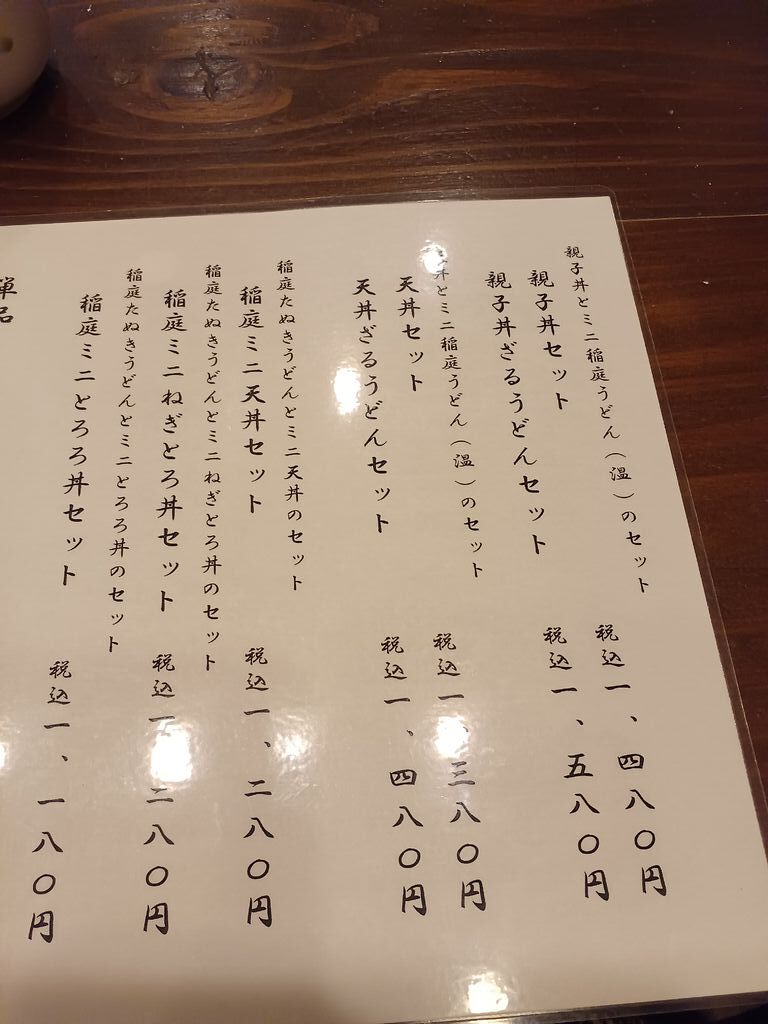 親子丼とミニ稲庭うどん（温）のセット
親子丼セット 税込一、四八〇円
親子丼ざるうどんセット 税込一、五八〇円
丼とミニ稲庭うどん（温）のセット
天丼セット 税込一、三八〇円
天丼ざるうどんセット 税込一、四八〇円
稲庭たぬきうどんとミニ天丼のセット
稲庭ミニ天丼セット 税込一、二八〇円
稲庭たぬきうどんとミニねぎとろ丼のセット
稲庭ミニねぎとろ丼セット 税込一、二八〇円
稲庭たぬきうどんとミニとろろ丼のセット
稲庭ミニとろろ丼セット 税込一、一八〇円
単品